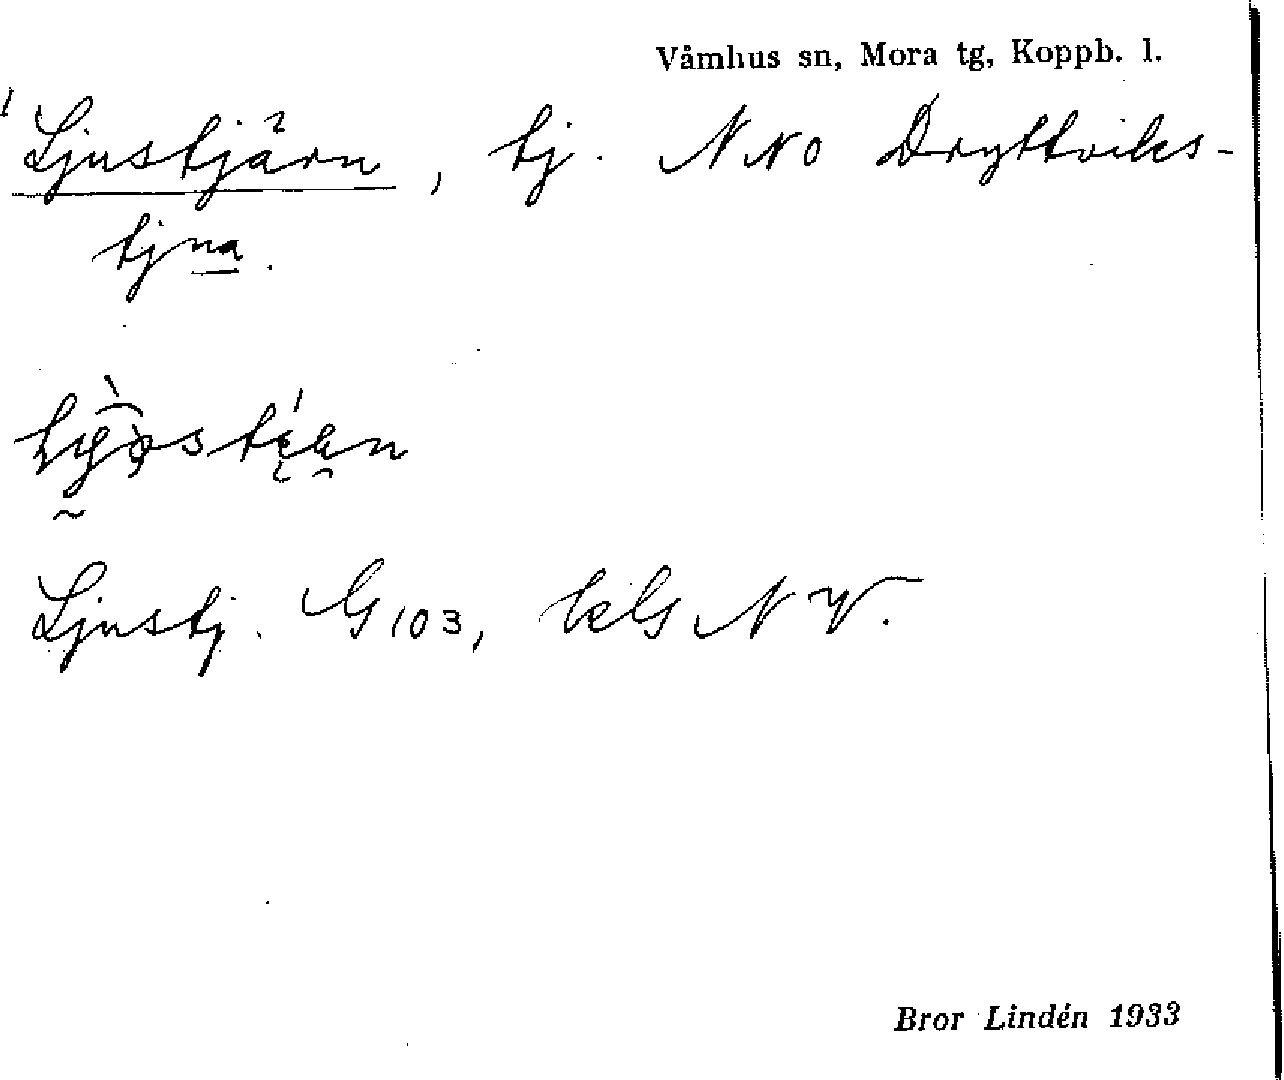 Våmhus sn, Mora tg, Koppb. l.
Ljustjärn, tj. NNO Dryttviks-
tjna.
Ljustj. G 103, NV.
Bror Lindén 1933